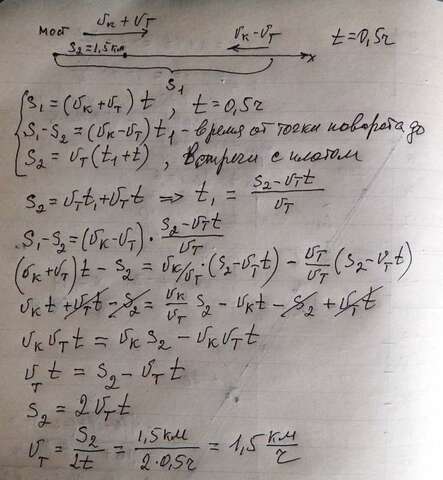 мост v_к + v_т v_к - v_т t = 0,5ч
S₂ = 1,5км x
S₁
S₁ = (v_к + v_т) t , t = 0,5ч
S₁ - S₂ = (v_к - v_т) t₁ - время от точки поворота до
S₂ = v_т (t₁ + t) , встречи с плотом
S₂ = v_т t₁ + v_т t ⇒ t₁ = (S₂ - v_т t) / v_т
S₁ - S₂ = (v_к - v_т) · (S₂ - v_т t) / v_т
(v_к + v_т) t - S₂ = v_к / v_т · (S₂ - v_т t) - v_т / v_т (S₂ - v_т t)
v_к t + v_т t - S₂ = v_к / v_т S₂ - v_к t - S₂ + v_т t
v_к v_т t = v_к S₂ - v_к v_т t
v_т t = S₂ - v_т t
S₂ = 2 v_т t
v_т = S₂ / 2t = 1,5 км / 2 · 0,5ч = 1,5 км / ч